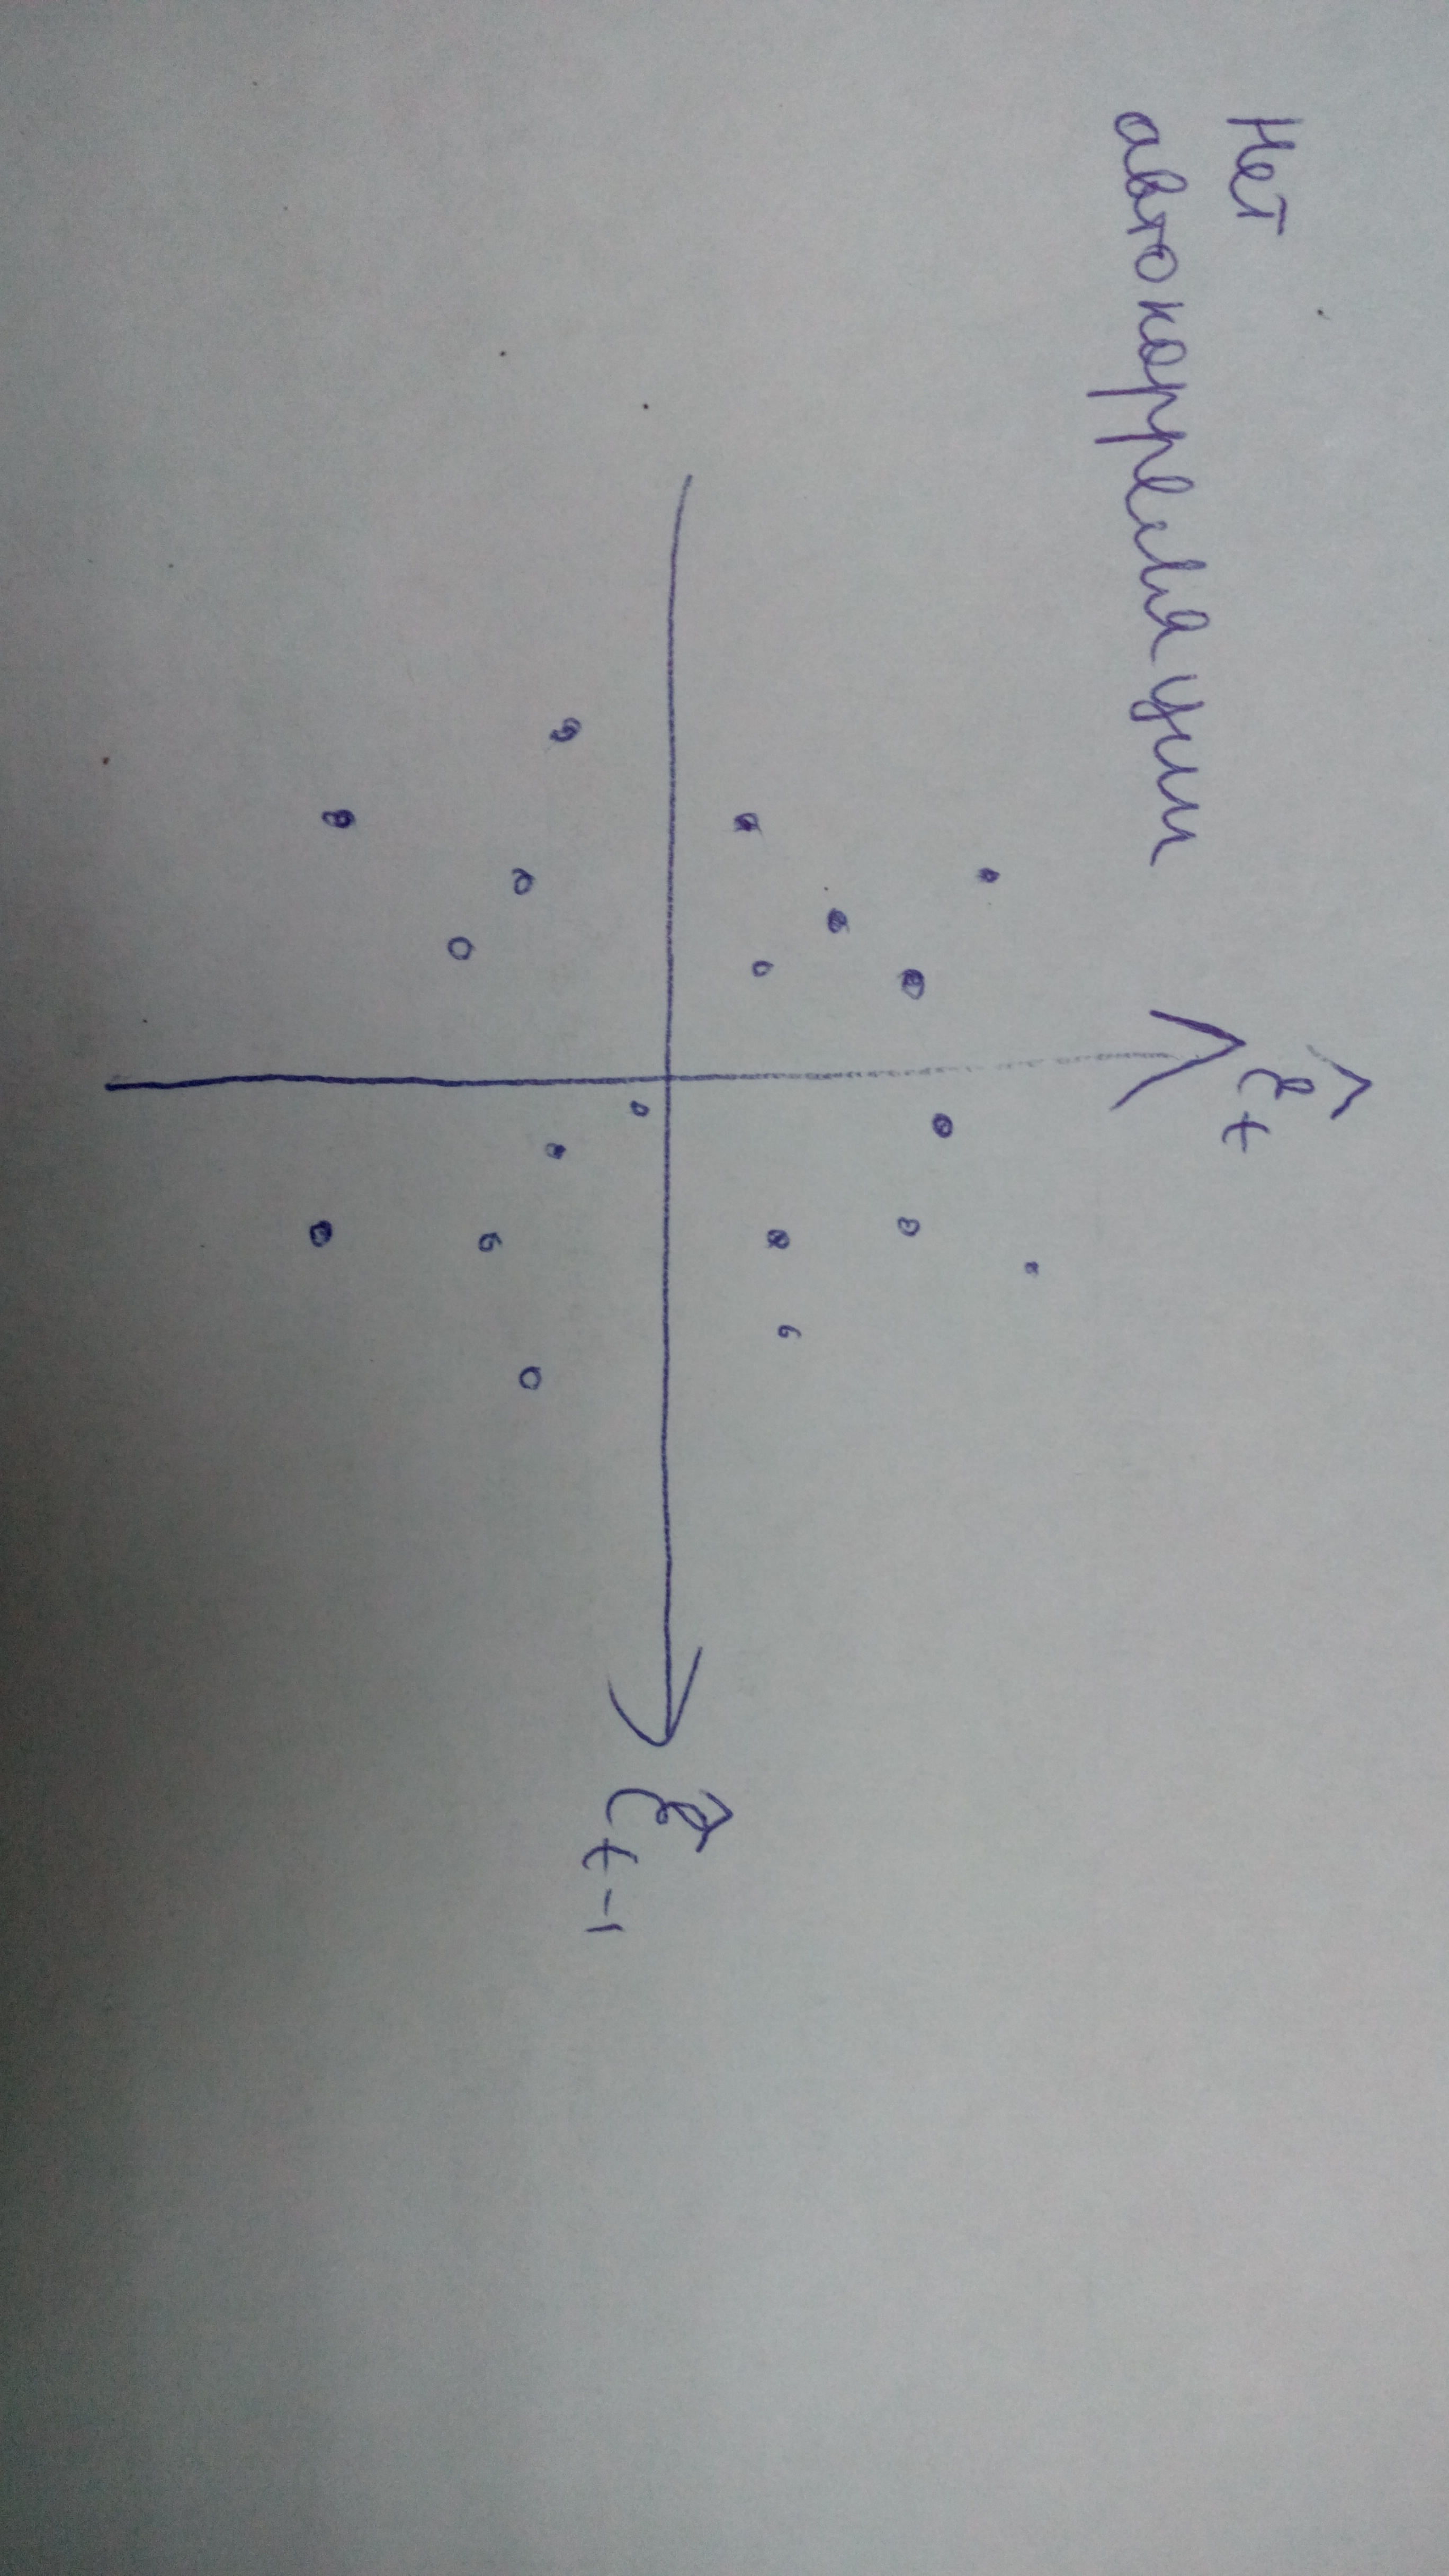 Нет
автокорреляции
ε̂t
ε̂t-1